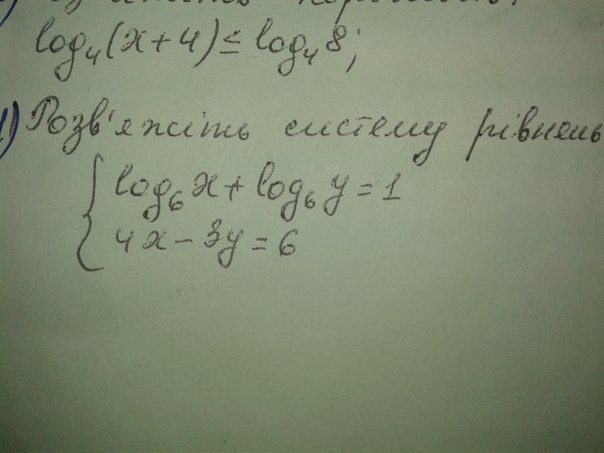 log₄(x+4) ≤ log₄8;
Розв'яжіть систему рівнень
{ log₆x + log₆y = 1
4x - 3y = 6